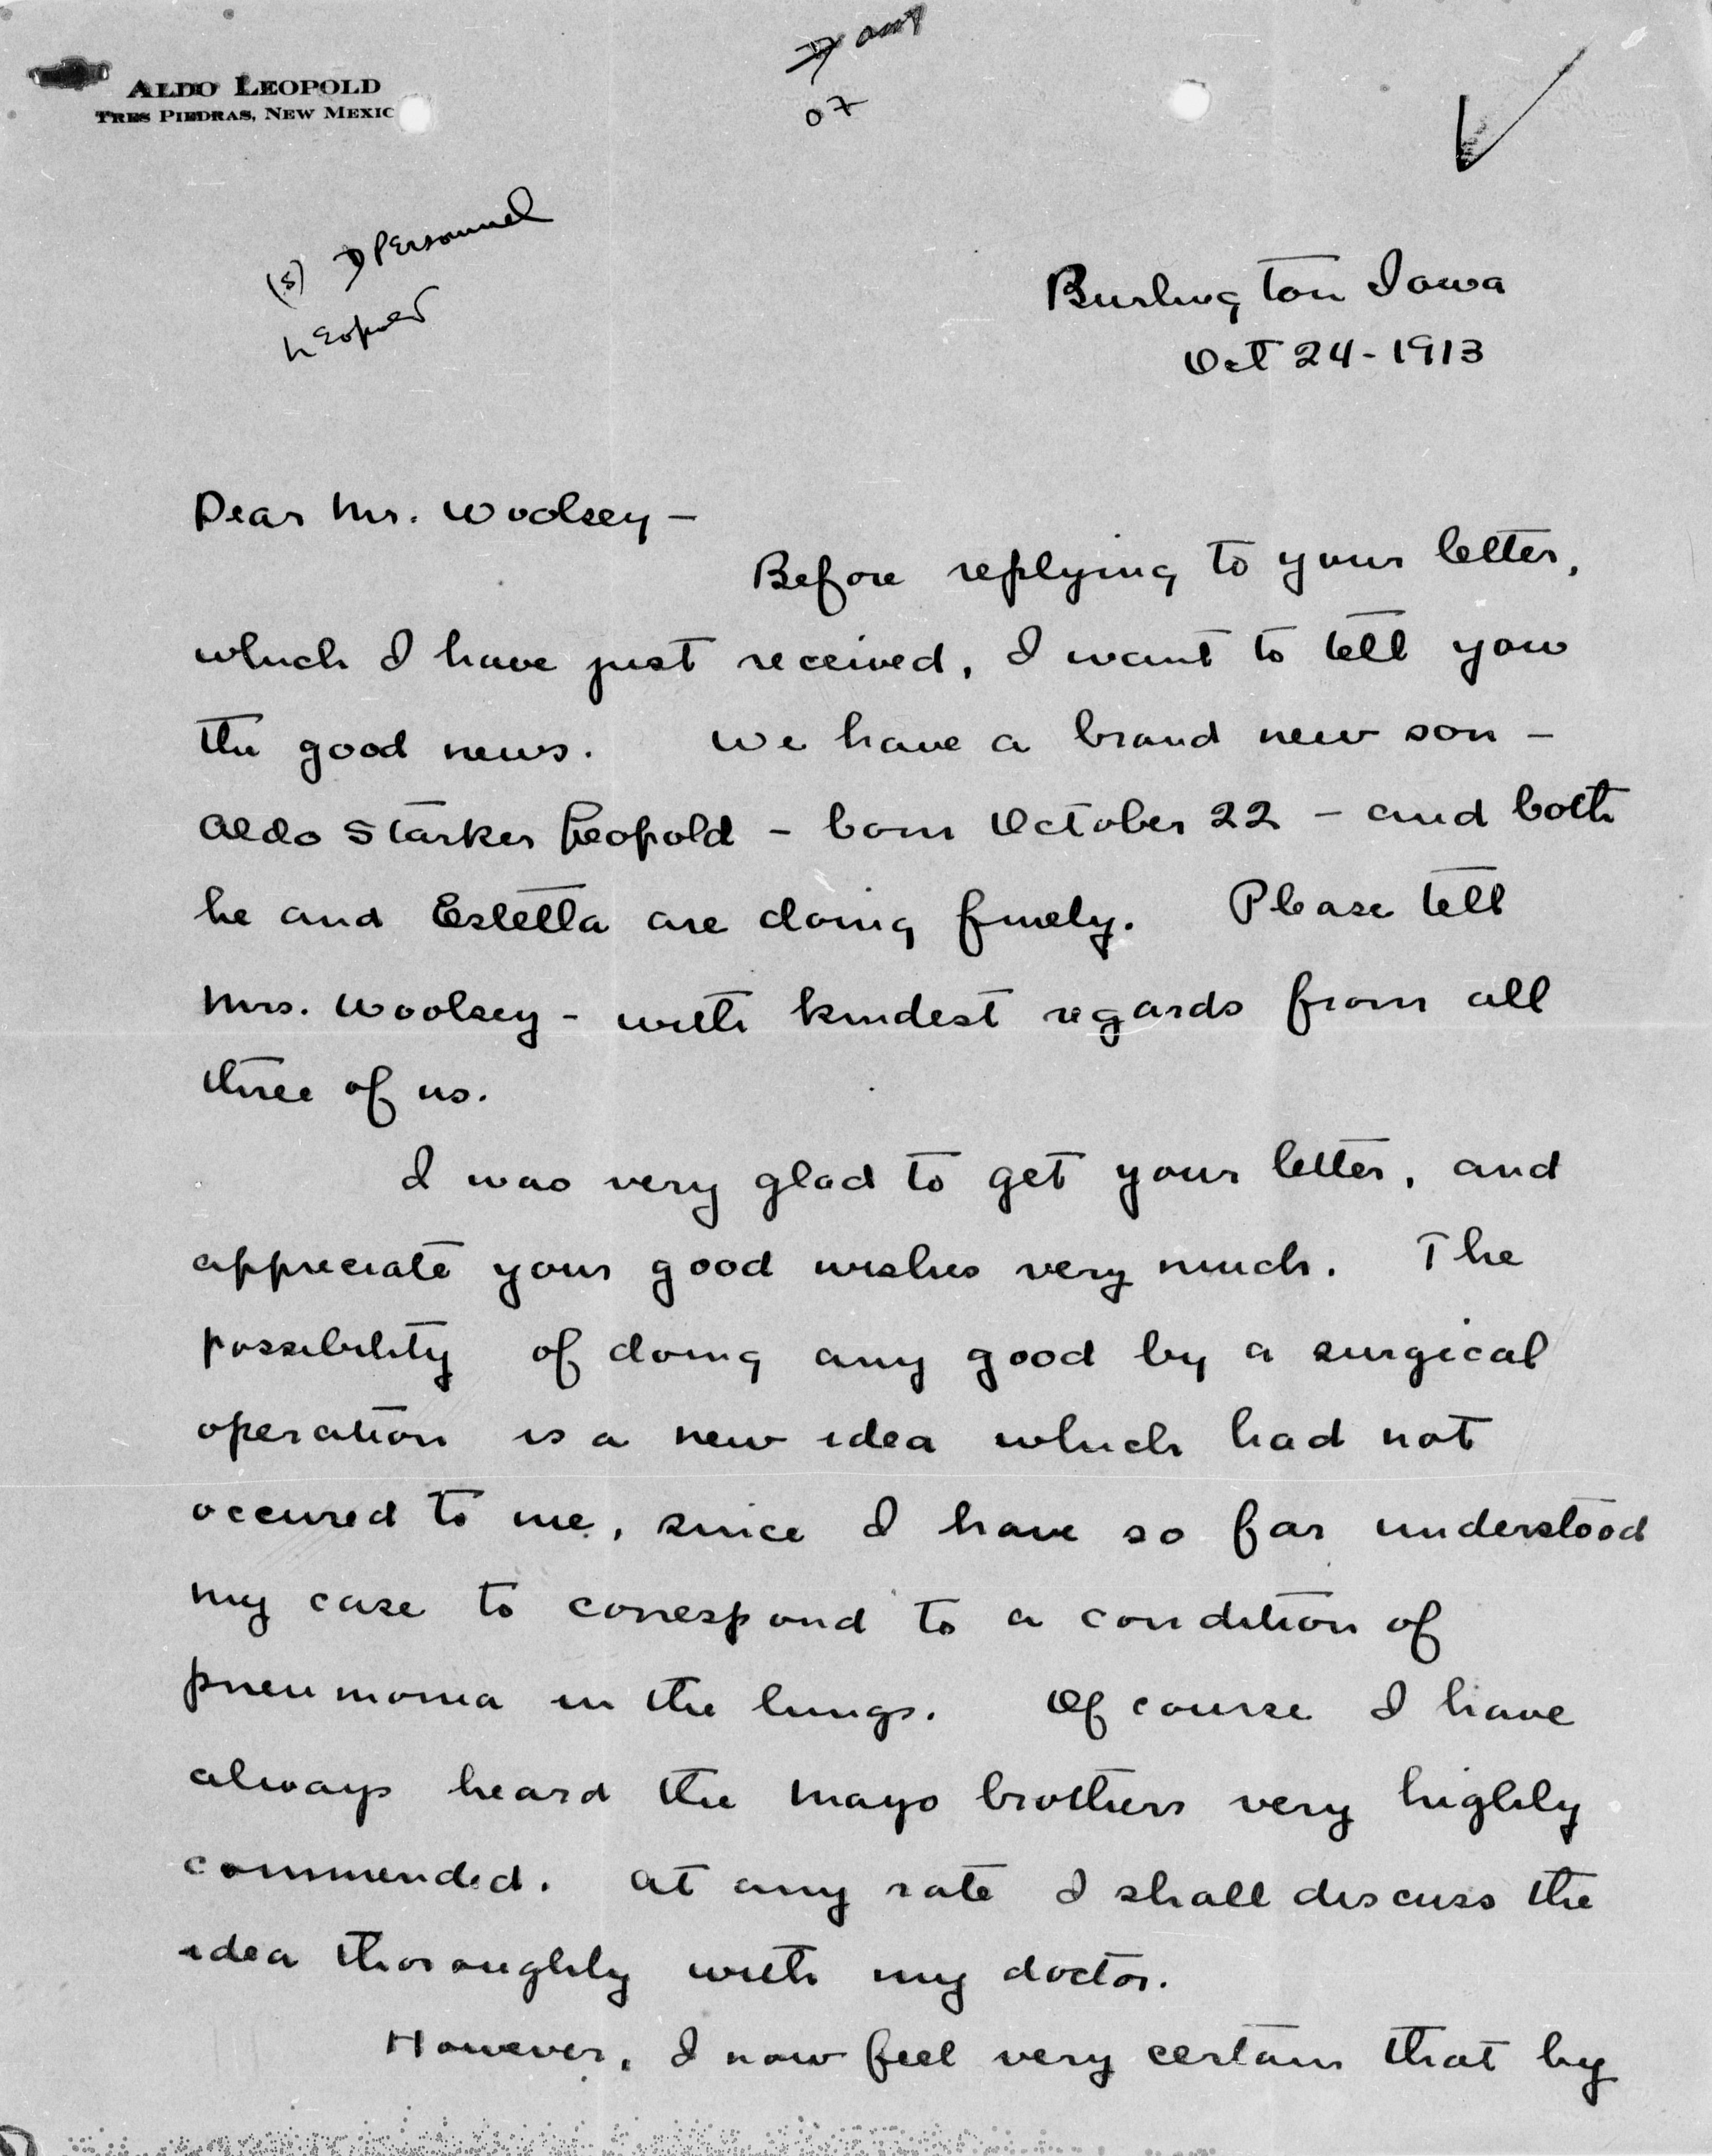 ALDO LEOPOLD
TRES PIEDRAS, NEW MEXIC
(S) D Personnel
Leopold
Burlington Iowa
Oct 24-1913
Dear Mr. Woolsey -
Before replying to your letter,
which I have just received, I want to tell you
the good news. We have a brand new son -
Aldo Starker Leopold - born October 22 - and both
he and Estella are doing finely. Please tell
Mrs. Woolsey - with kindest regards from all
three of us.
I was very glad to get your letter, and
appreciate your good wishes very much. The
possibility of doing any good by a surgical
operation is a new idea which had not
occured to me, since I have so far understood
my case to correspond to a condition of
pneumonia in the lungs. Of course I have
always heard the Mayo brothers very highly
commended. At any rate I shall discuss the
idea thoroughly with my doctor.
However, I now feel very certain that by